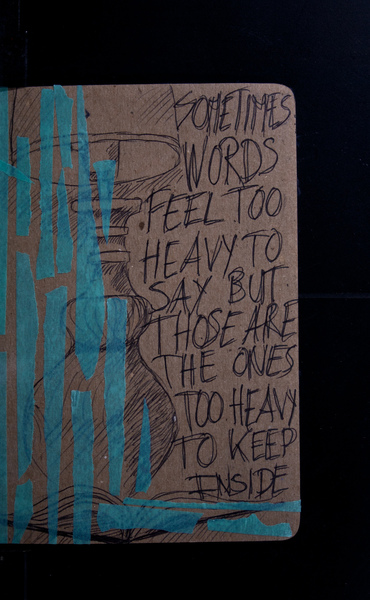 SOMETIMES
WORDS
FEEL TOO
HEAVY TO
SAY BUT
THOSE ARE
THE ONES
TOO HEAVY
TO KEEP
INSIDE